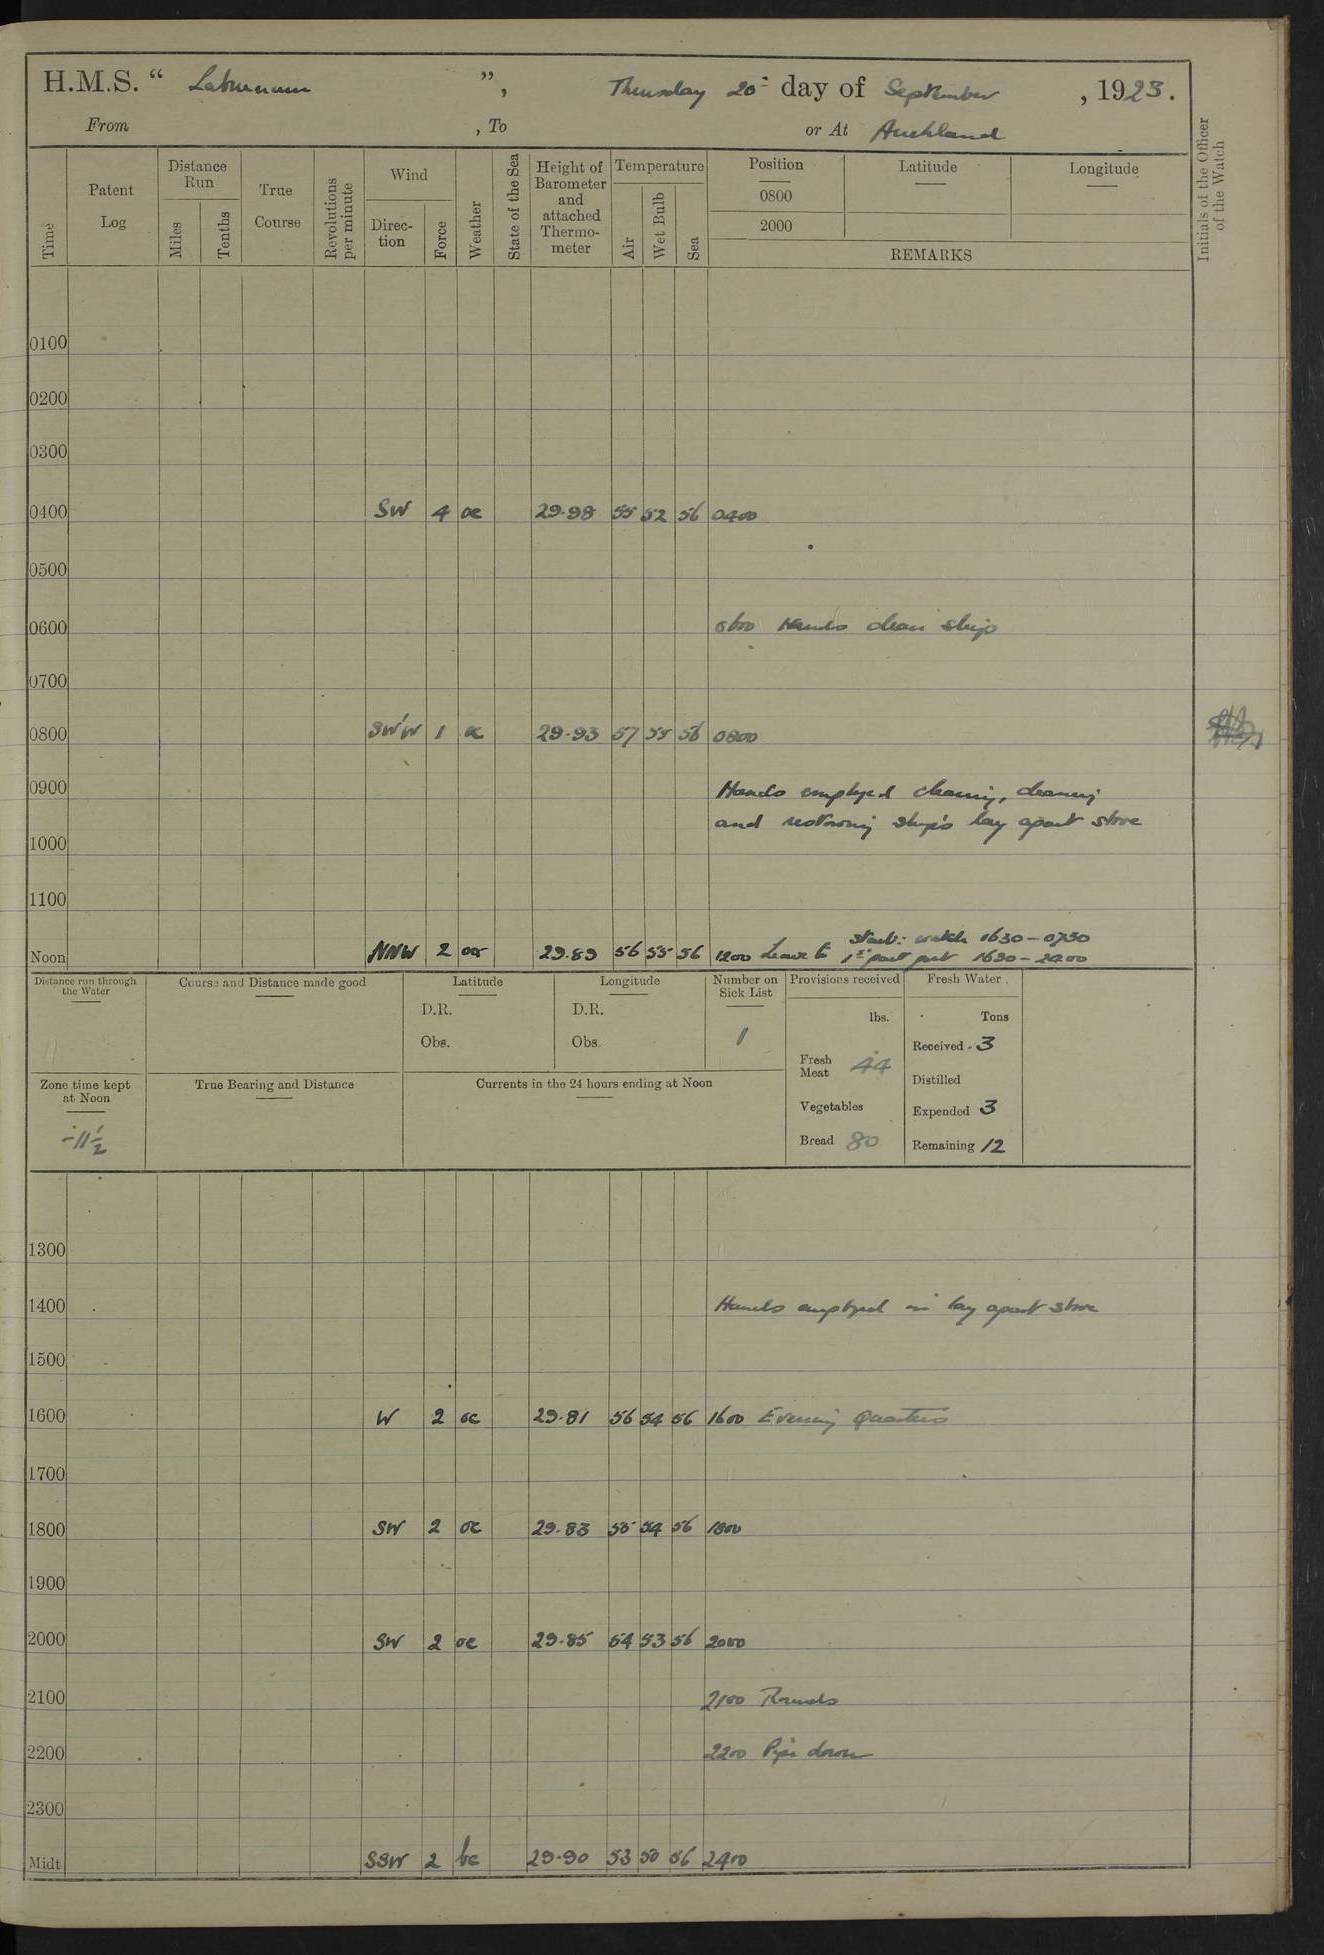 H.M.S. “ Laburnum ”, Thursday 20th day of September , 1923.
From , To or At Auckland
Time Patent Log Distance Run Miles Tenths True Course Revolutions per minute Wind Direc-tion Force Weather State of the Sea Height of Barometer and attached Thermo-meter Temperature Air Wet Bulb Sea Position 0800 2000 Latitude Longitude
REMARKS
Initials of the Officer of the Watch
0100
0200
0300
0400 SW 4 oc 29.98 55 52 56 0400
0500
0600 0600 Hands clean ship
0700
0800 SW'W 1 oc 29.93 57 55 56 0800
0900 Hands employed clearing, cleaning
and restowing ship's lay apart store
1000
1100
Starb: watch 1630 – 0730
Noon NNW 2 or 29.89 56 55 56 1200 Leave to 1st part port 1630 – 2400
Distance run through the Water Course and Distance made good Latitude Longitude Number on Sick List Provisions received Fresh Water
D.R. D.R. lbs. Tons
Obs. Obs. 1 Received 3
Fresh Meat 44
Zone time kept at Noon True Bearing and Distance Currents in the 24 hours ending at Noon Distilled
Vegetables Expended 3
-11½ Bread 80 Remaining 12
1300
1400 Hands employed in lay apart store
1500
1600 W 2 oc 29.81 56 54 56 1600 Evening Quarters
1700
1800 SW 2 oc 29.83 55 54 56 1800
1900
2000 SW 2 oc 29.85 54 53 56 2000
2100 2100 Rounds
2200 2200 Pipe down
2300
Midt SSW 2 bc 29.90 53 50 56 2400